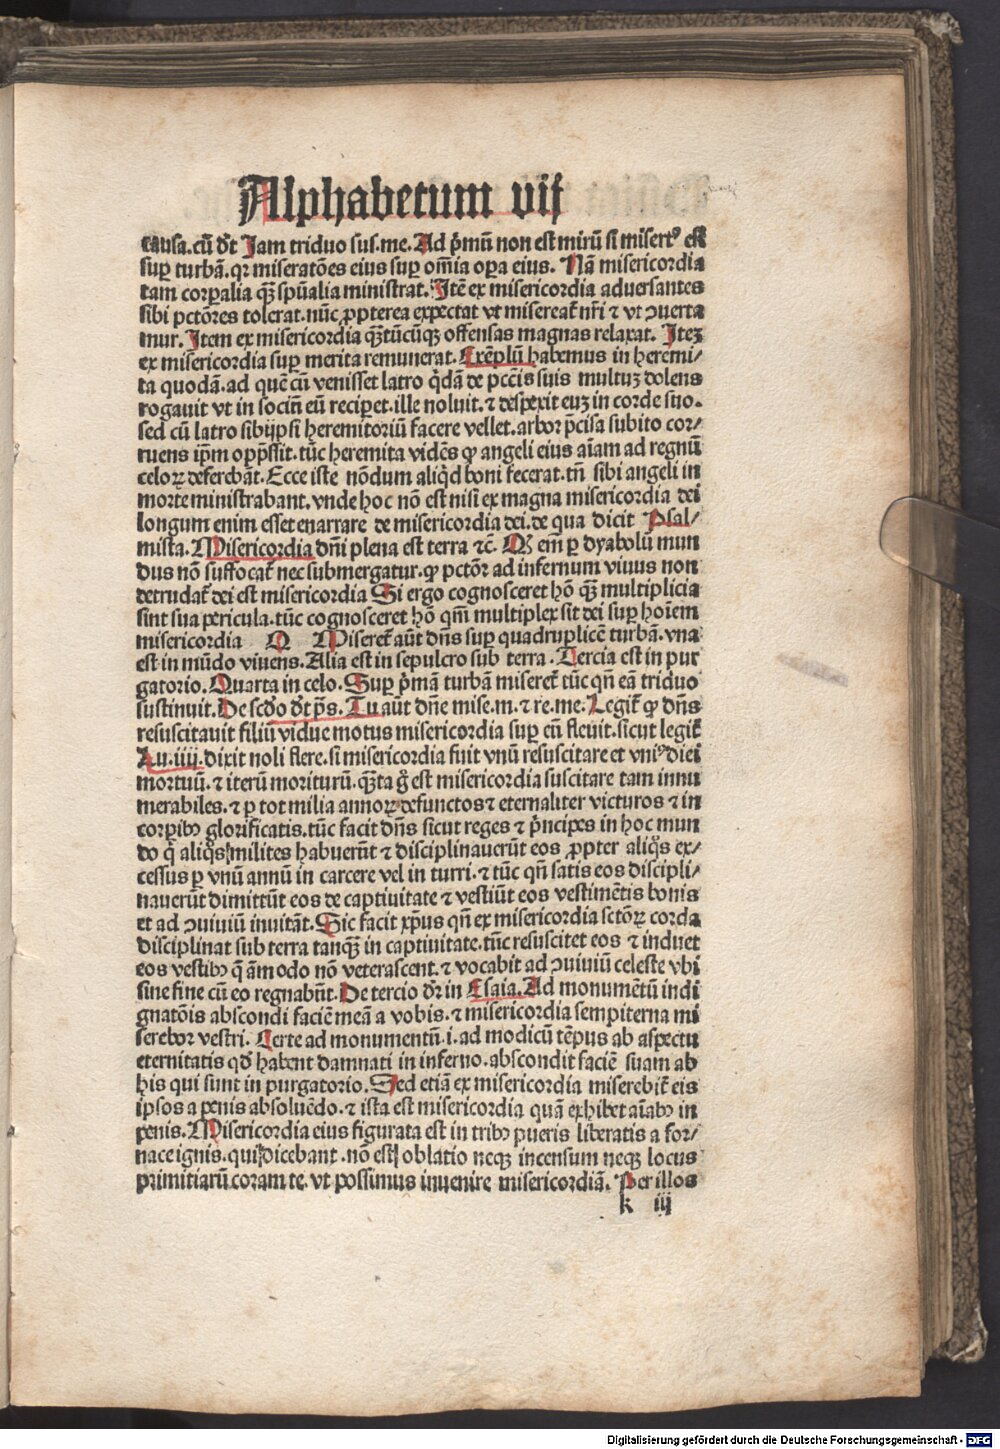 Alphabetum vij
causa.cū d̄t Jam triduo sus.me. Ad p̄mū non est mirū si misertꝰ est
suꝑ turbā.qꝛ miseratōes eius suꝑ om̄ia oꝑa eius. Nā misericordia
tam corꝑalia qꝫ̄ spūalia ministrat. Itē ex misericordia aduersantes
sibi pctōres tolerat.nūc ꝓpterea expectat vt misereat᷑ nr̄i ⁊ vt ↄuerta
mur. Item ex misericordia qꝫ̄tūcūqꝫ offensas magnas relaxat. Iteꝫ
ex misericordia suꝑ merita remunerat. Exēplū habemus in heremi⸗
ta quodā.ad quē cū venisset latro q̇dā de pccīs suis multuꝫ dolens
rogauit vt in sociū eū reciꝑet.ille noluit.⁊ despexit euꝫ in corde suo.
sed cū latro sibijpsi heremitoriū facere vellet.arbor p̄cisa subito cor⸗
ruens ip̄m opp̄ssit.tūc heremita vidēs ꝙ angeli eius aīam ad regnū
celoꝝ deferebāt. Ecce iste nōdum aliq̇d boni fecerat.tn̄ sibi angeli in
morte ministrabant.vnde hoc nō est nisi ex magna misericordia dei
longum enim esset enarrare de misericordia dei.de qua dicit Psal⸗
mista. Misericordia dn̄i plena est terra ⁊c̄. Qꝫ em̄ ꝑ dyabolū mun
dus nō suffocat᷑ nec submergatur.ꝙ pctōr ad infernum viuus non
detrudat᷑ dei est misericordia Si ergo cognosceret hō qꝫ̄ multiplicia
sint sua pericula.tūc cognosceret hō qm̄ multiplex sit dei suꝑ hoīem
misericordia Q Miseret᷑ aūt dn̄s suꝑ quadruplicē turbā.vna
est in mūdo viuens. Alia est in sepulcro sub terra. Tercia est in pur
gatorio. Quarta in celo. Suꝑ p̄mā turbā miseret᷑ tūc qn̄ eā triduo
sustinuit. De scd̄o d̄t ps̄. Tu aūt dn̄e mise.m.⁊ re.me. Legit᷑ ꝙ dn̄s
resuscitauit filiū vidue motus misericordia suꝑ eū fleuit.sicut legit᷑
Lu.iiij.dixit noli flere.si misericordia fuit vnū resuscitare et vniꝰ diei
mortuū.⁊ iterū moriturū.qꝫ̄ta g̊ est misericordia suscitare tam innu
merabiles.⁊ ꝑ tot milia annoꝝ defunctos ⁊ eternaliter victuros ⁊ in
corꝑibꝫ glorificatis.tūc facit dn̄s sicut reges ⁊ p̄ncipes in hoc mun
do q̇ aliq̊s milites habuerūt ⁊ disciplinauerūt eos ꝓpter aliq̊s ex⸗
cessus ꝑ vnū annū in carcere vel in turri.⁊ tūc qn̄ satis eos discipli⸗
nauerūt dimittūt eos de captiuitate ⁊ vestiūt eos vestimētis bonis
et ad ↄuiuiū inuitāt. Sic facit xp̄us qn̄ ex misericordia sctōꝝ corda
disciplinat sub terra tanqꝫ̄ in captiuitate.tūc resuscitet eos ⁊ induet
eos vestibꝫ q̄ āmodo nō veterascent.⁊ vocabit ad ↄuiuiū celeste vbi
sine fine cū eo regnabūt. De tercio dr̄ in Esaia. Ad monumētū indi
gnatōis abscondi faciē meā a vobis.⁊ misericordia sempiterna mi
serebor vestri. Certe ad monumentū.i.ad modicū tēpus ab aspectu
eternitatis qd̄ habent damnati in inferno.abscondit faciē suam ab
his qui sunt in purgatorio. Sed etiā ex misericordia miserebit᷑ eis
ipsos a penis absoluēdo.⁊ ista est misericordia quā exhibet aīabꝫ in
penis. Misericordia eius figurata est in tribꝫ pueris liberatis a for⸗
nace ignis.qui dicebant.nō est oblatio neqꝫ incensum neqꝫ locus
primitiarū coram te.vt possimus inuenire misericordiā. Per illos
k iij
Digitalisierung gefördert durch die Deutsche Forschungsgemeinschaft - DFG